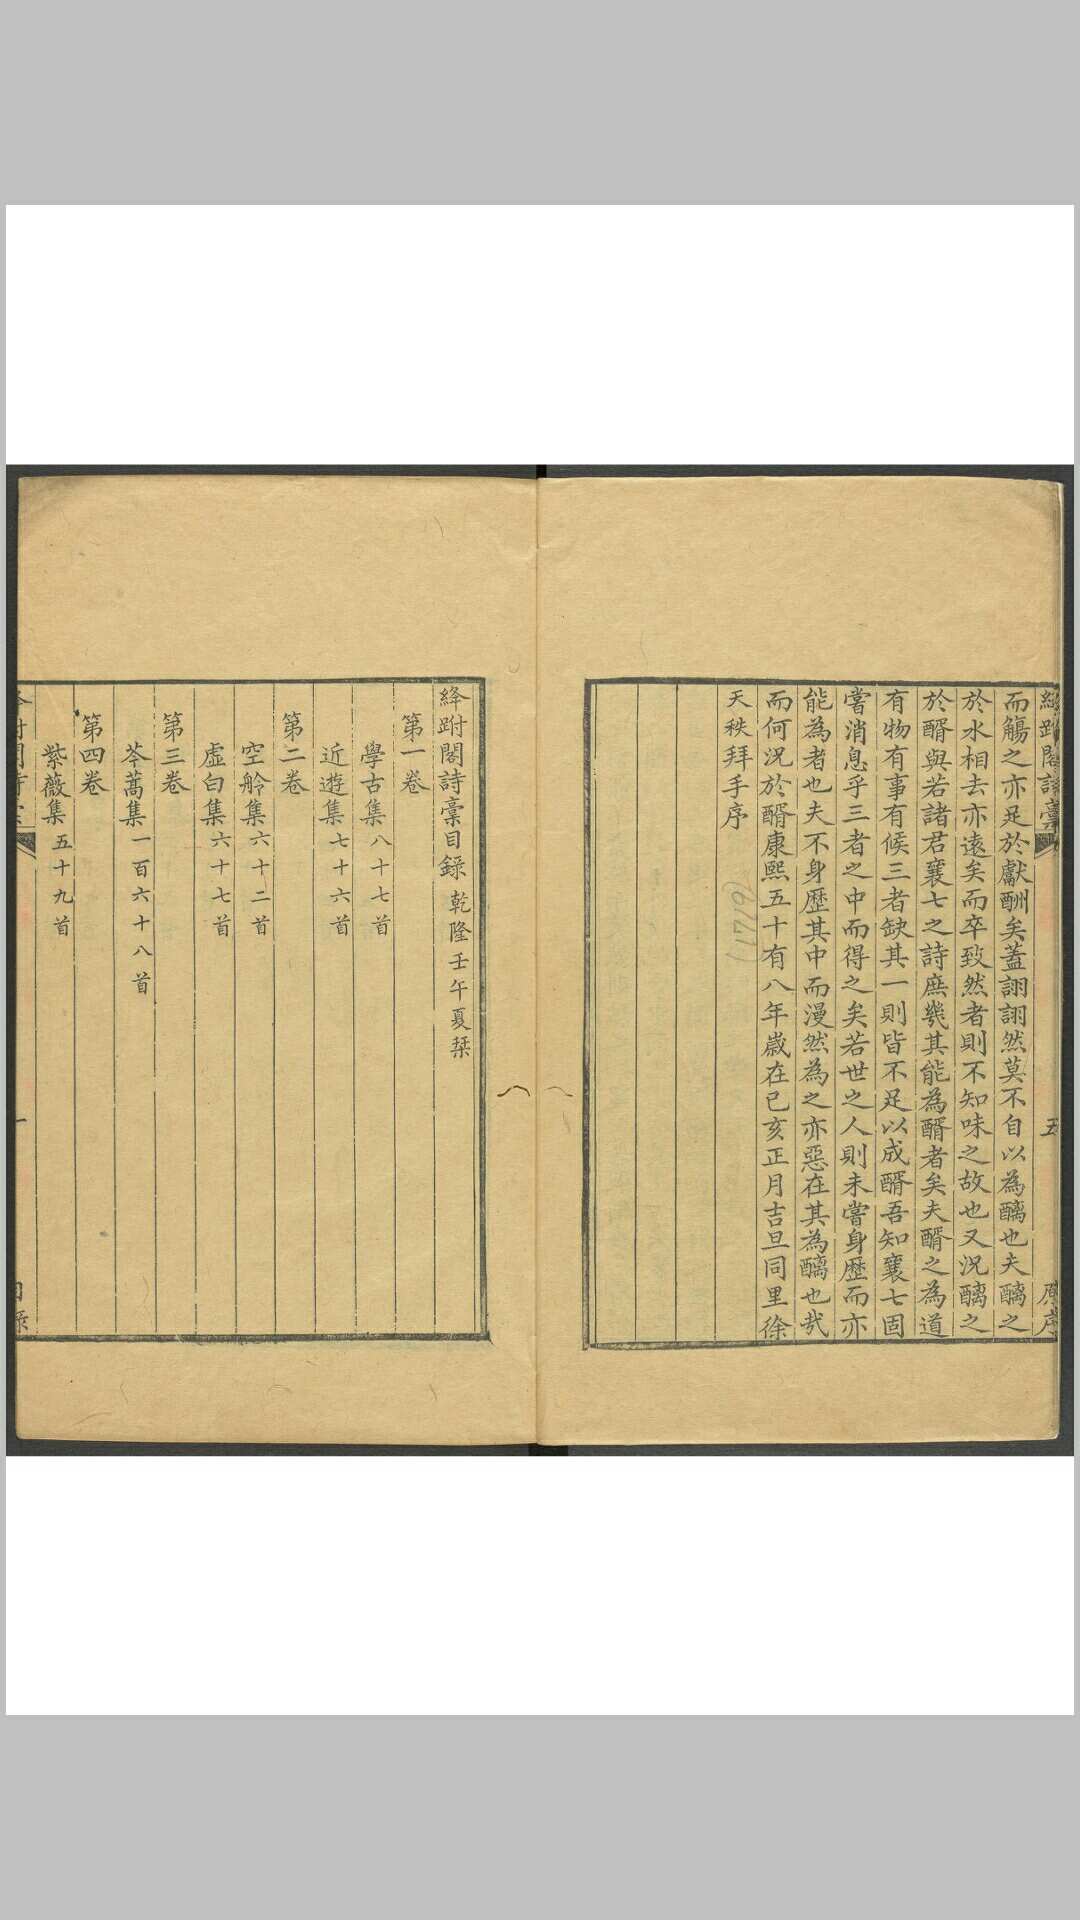 絳跗閣詩稾
五
原序
而觴之亦足於獻酬矣蓋詡詡然莫不自以為醨也夫醨之
於水相去亦遠矣而卒致然者則不知味之故也又況醨之
於醑與若諸君襄七之詩庶幾其能為醑者矣夫醑之為道
有物有事有候三者缺其一則皆不足以成醑吾知襄七固
嘗消息乎三者之中而得之矣若世之人則未嘗身歷而亦
能為者也夫不身歷其中而漫然為之亦惡在其為醨也哉
而何況於醑康熙五十有八年歲在己亥正月吉旦同里徐
天秩拜手序
(1719)
絳跗閣詩稾目錄 乾隆壬午夏栞
第一卷
學古集八十七首
近遊集七十六首
第二卷
空舲集六十二首
虛白集六十七首
第三卷
苓蒿集一百六十八首
第四卷
紫薇集五十九首
一
目錄